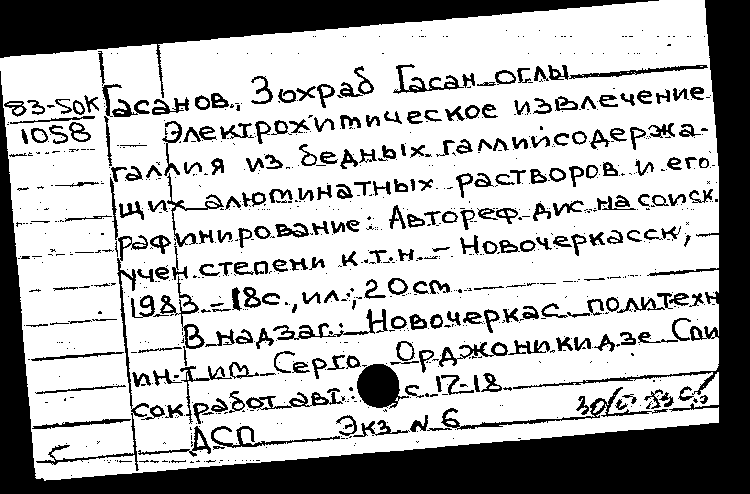 83-50К Гасанов, Зохраб Гасан оглы
1058 Электрохимическое извлечение
галлия из бедных галлийсодержа-
щих алюминатных растворов и его
рафинирование: Автореф. дис. на соиск.
учен. степени к.т.н. – Новочеркасск,
1983. – 18с., ил.; 20 см.
В надзаг.: Новочеркас. политехн
ин-т им. Серго Орджоникидзе Спи
сок работ авт.: с 17-18
ДСП Экз N 6